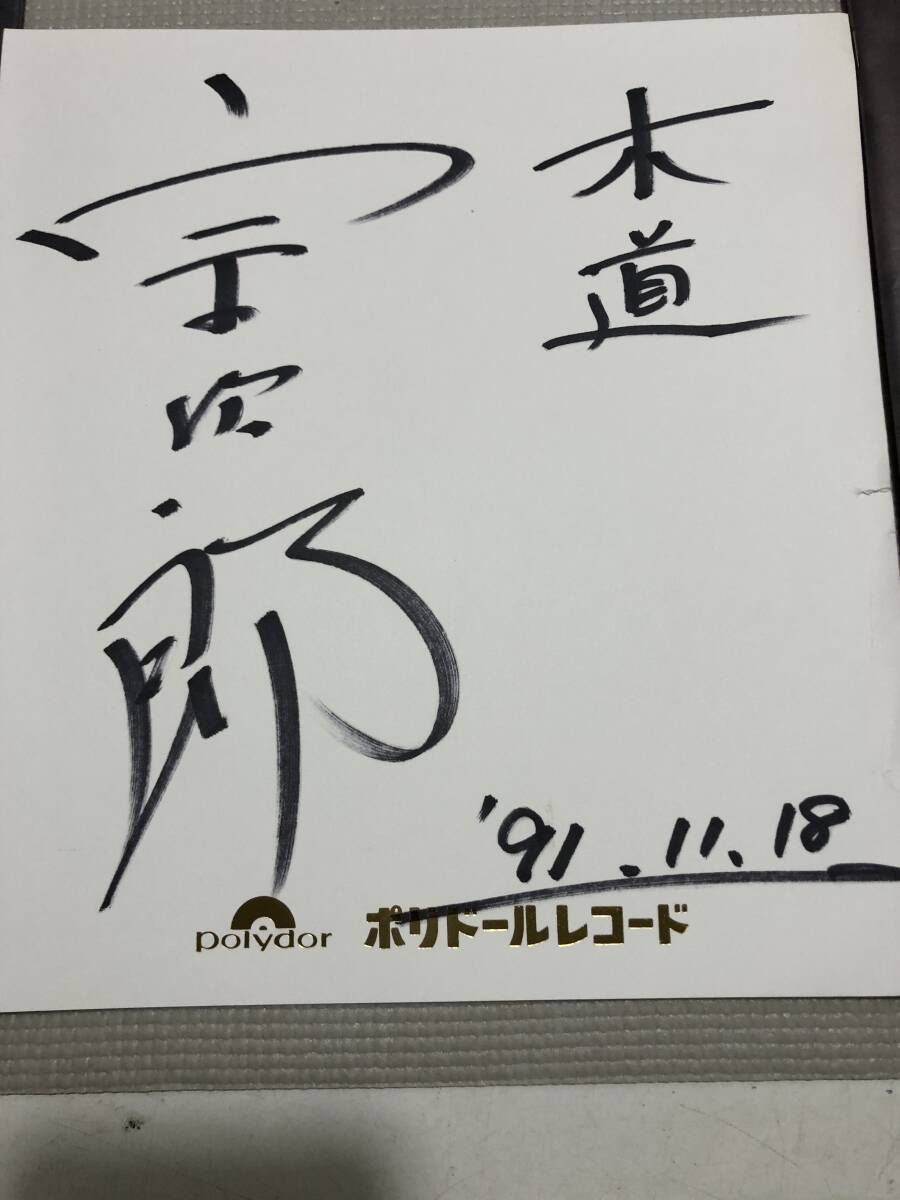 木道
宗次郎
'91.11.18
polydor ポリドールレコード